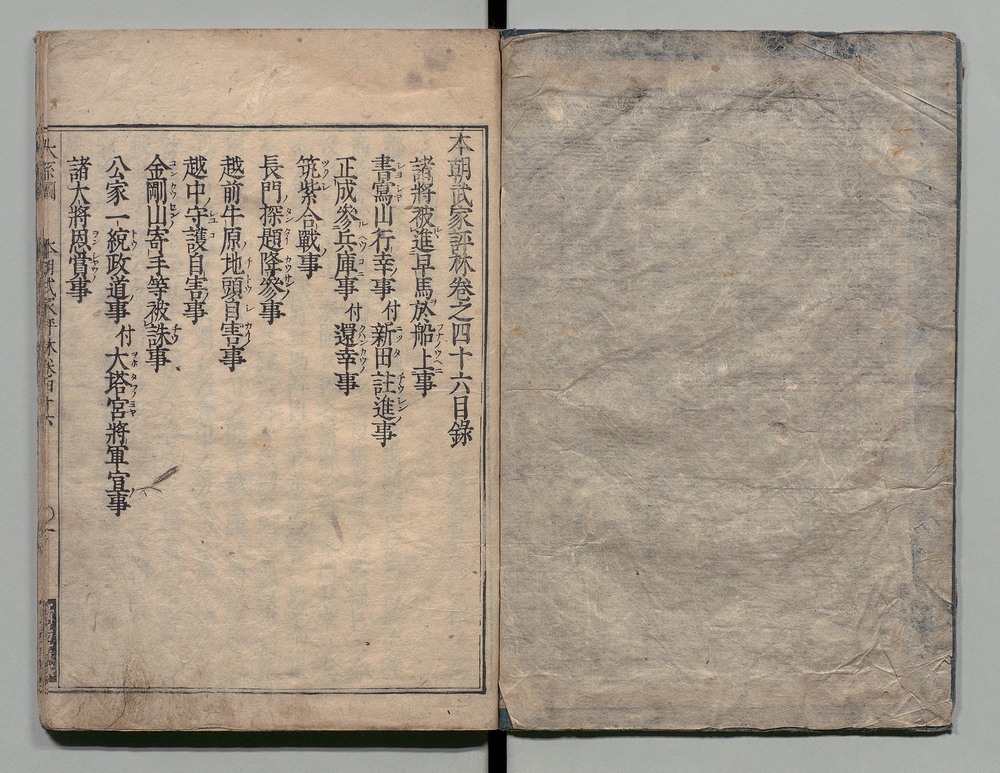 本朝武家評林卷之四十六目錄
諸將被進早馬於船上事
書寫山行幸事 付 新田註進事
正成參兵庫事 付 還幸事
筑紫合戰事
長門探題降參事
越前牛原地頭自害事
越中守護自害事
金剛山寄手等被誅事
公家一統政道事 付 大塔宮將軍宣事
諸大將恩賞事
大系圖 本朝武家評林卷四十六